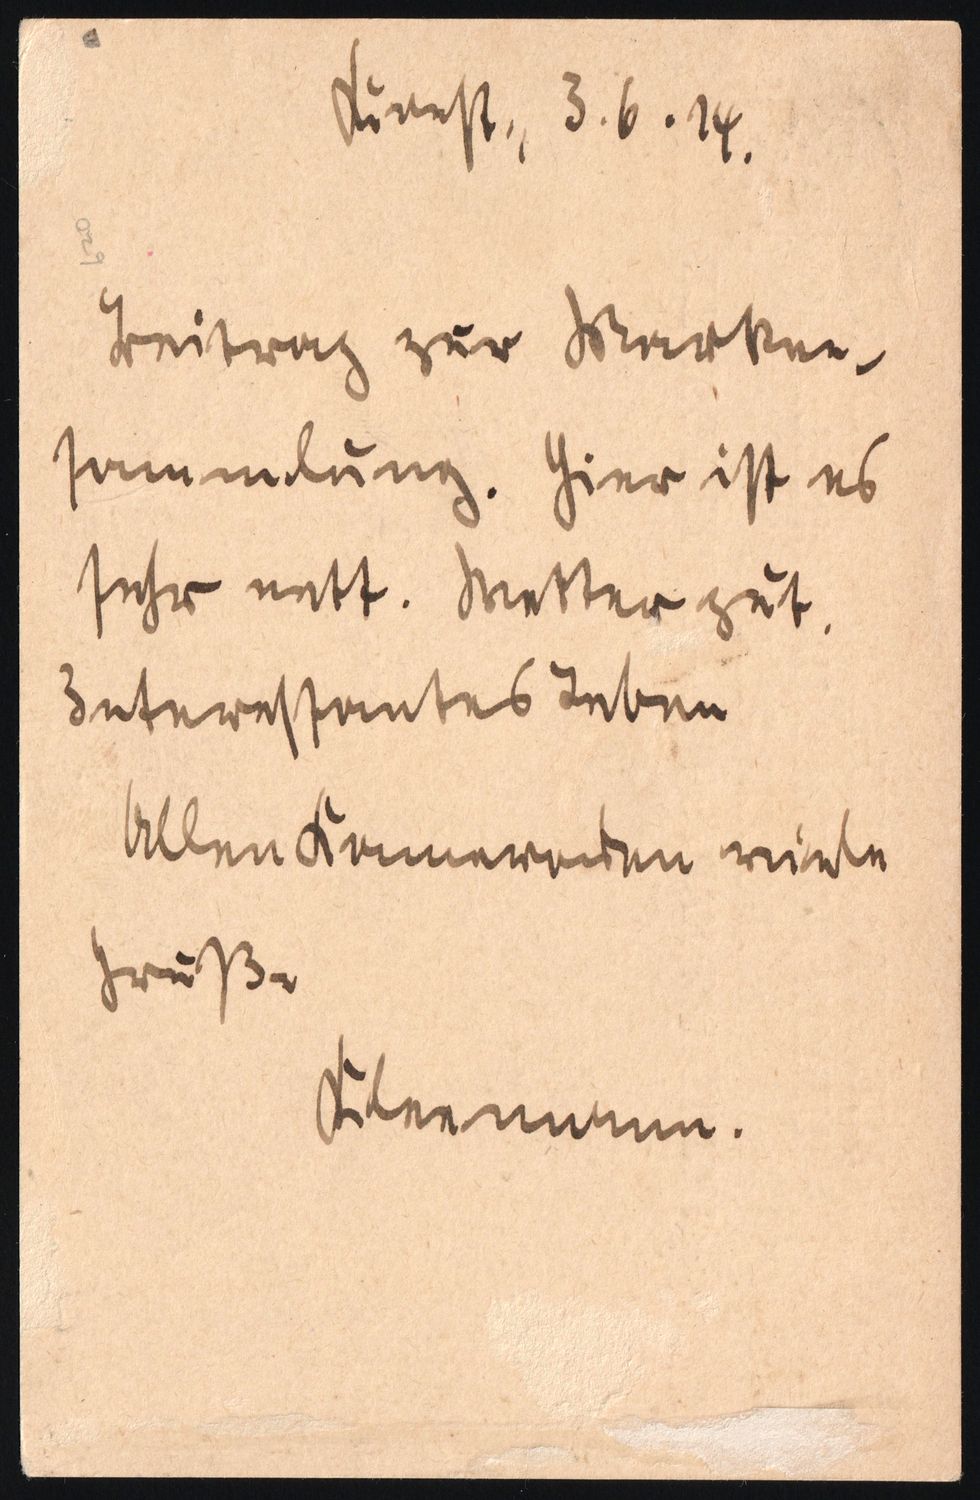 3.6.14.
Beitrag zur Marken-
sammlung. Hier ist es
sehr nett. Wetter gut.
Interessantes Leben
Allen Kameraden viele
Grüße
Kleemann.